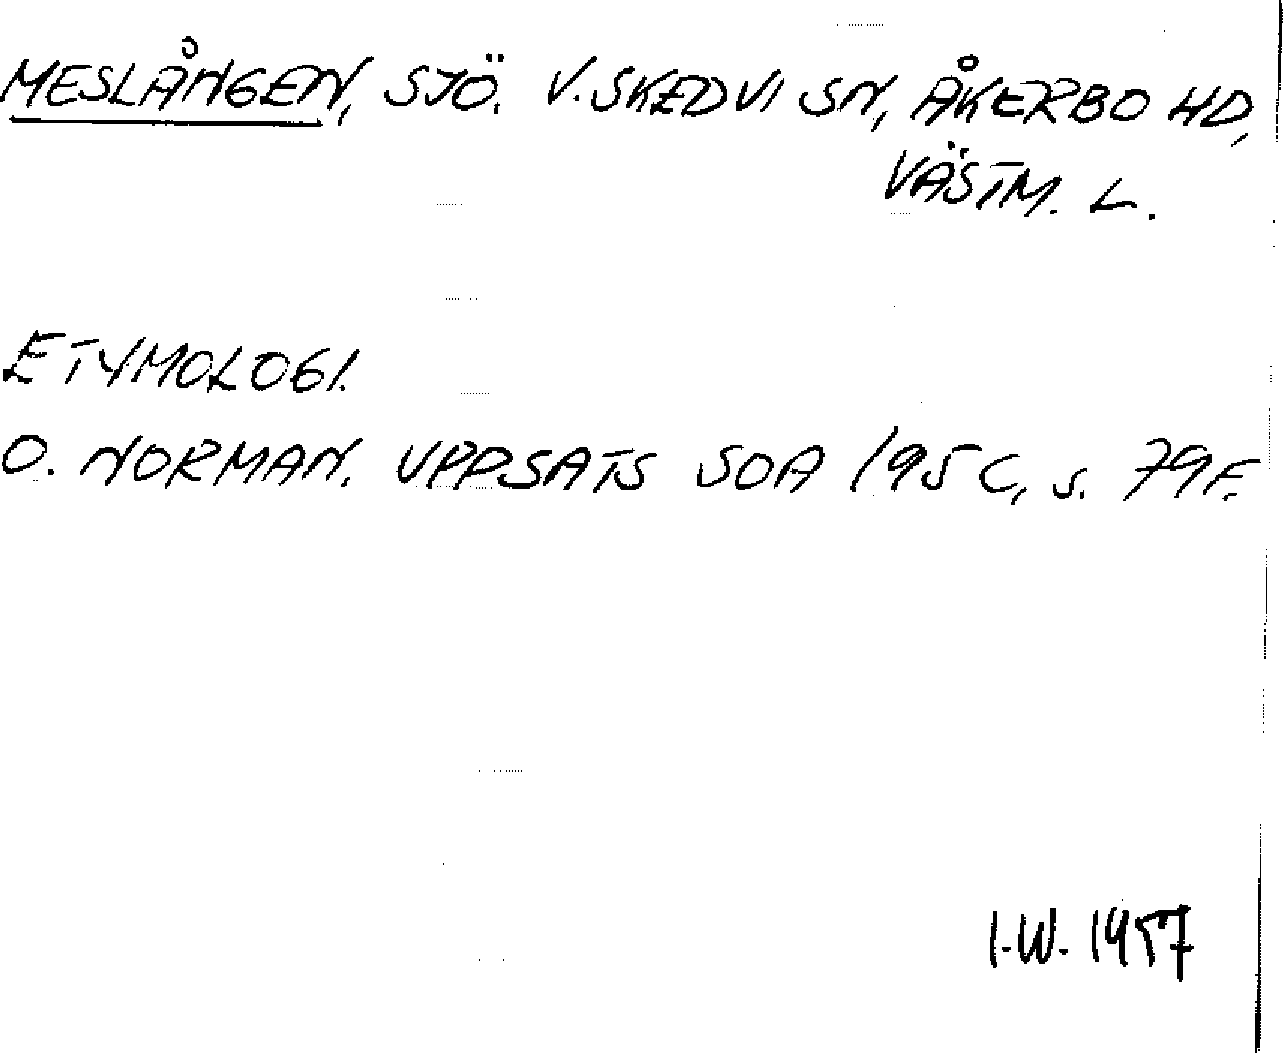 MESLÅNGEN, SJÖ. V. SKEDVI SN, ÅKERBO HD,
VÄSTM. L.
ETYMOLOGI.
O. NORMAN. UPPSATS SOA 195C, s. 79F.
I.W. 1957